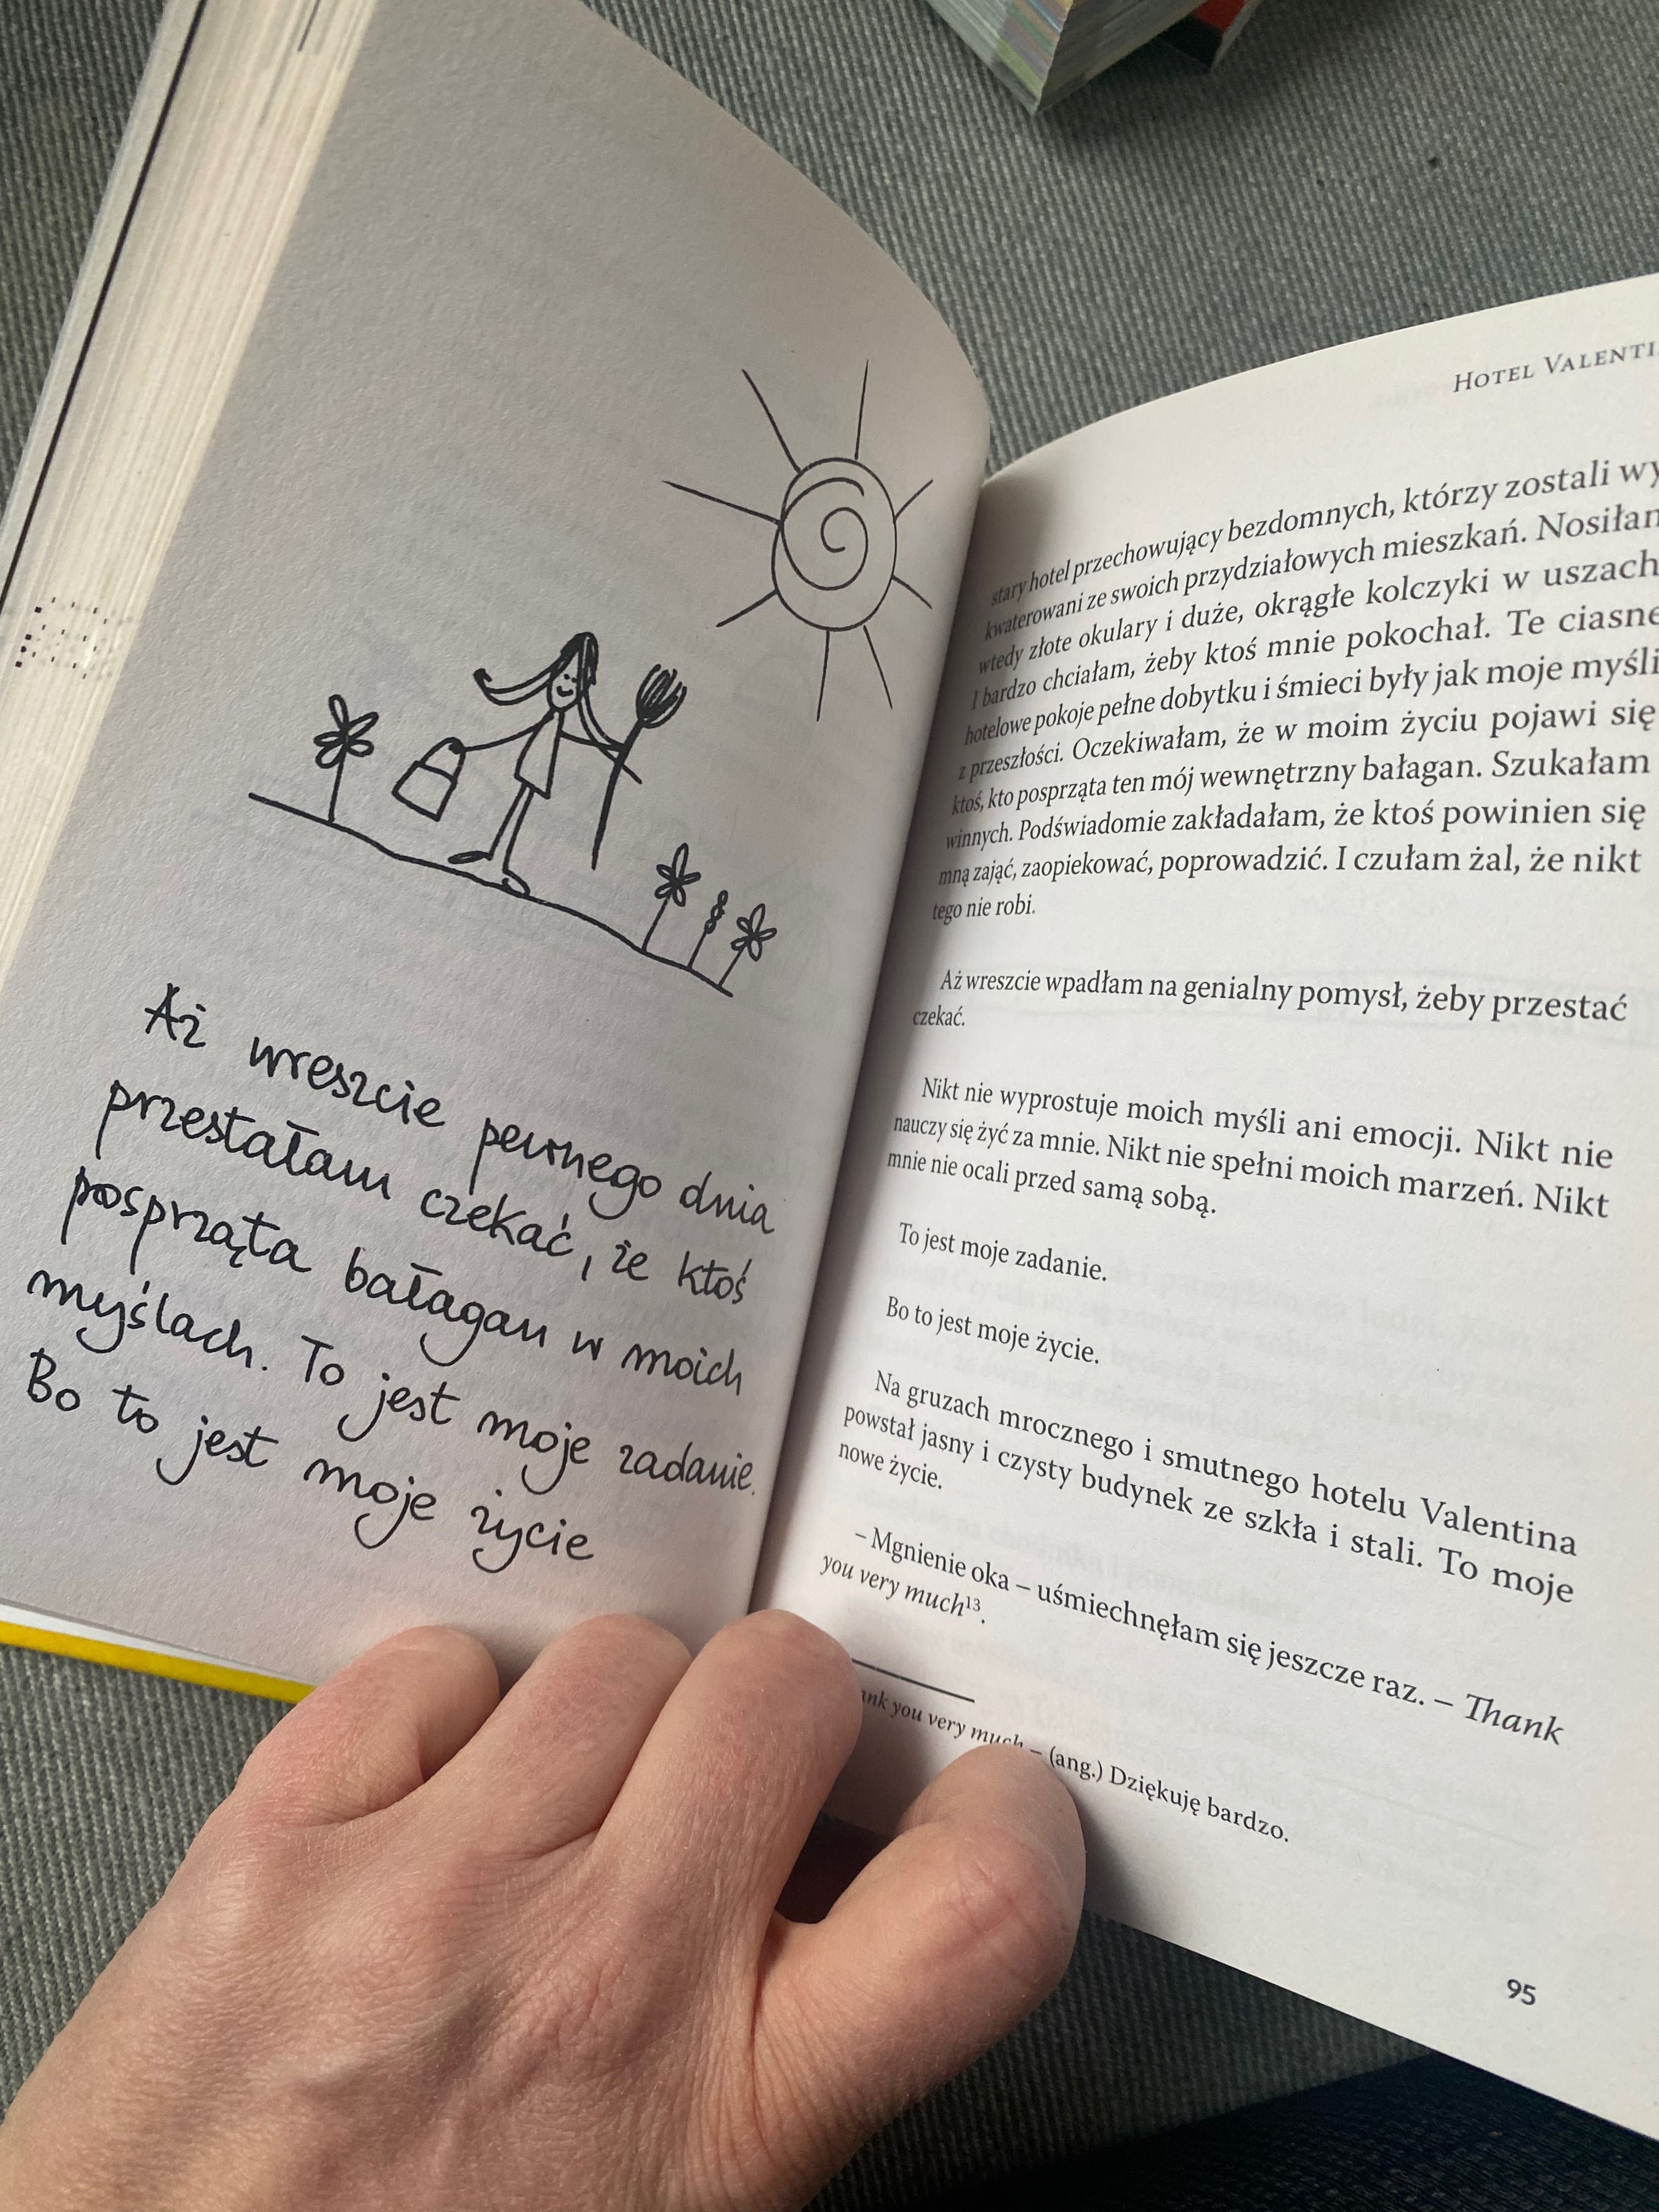 Aż wreszcie pewnego dnia
przestałam czekać, że ktoś
posprząta bałagan w moich
myślach. To jest moje zadanie.
Bo to jest moje życie
HOTEL
stary hotel przechowujący bezdomnych, którzy zostali
kwaterowani ze swoich przydziałowych mieszkań.
wtedy złote okulary i duże, okrągłe kolczyki w uszach
I bardzo chciałam, żeby ktoś mnie pokochał. Te ciasne
hotelowe pokoje pełne dobytku i śmieci były jak moje myśli
z przeszłości. Oczekiwałam, że w moim życiu pojawi się
ktoś, kto posprząta ten mój wewnętrzny bałagan. Szukałam
winnych. Podświadomie zakładałam, że ktoś powinien się
mną zająć, zaopiekować, poprowadzić. I czułam żal, że nikt
tego nie robi.
Aż wreszcie wpadłam na genialny pomysł, żeby przestać
czekać.
Nikt nie wyprostuje moich myśli ani emocji. Nikt nie
nauczy się żyć za mnie. Nikt nie spełni moich marzeń. Nikt
mnie nie ocali przed samą sobą.
To jest moje zadanie.
Bo to jest moje życie.
Na gruzach mrocznego i smutnego hotelu Valentina
powstał jasny i czysty budynek ze szkła i stali. To moje
nowe życie.
– Mgnienie oka – uśmiechnęłam się jeszcze raz. – Thank
you very much¹³.
you very much – (ang.) Dziękuję bardzo.
95